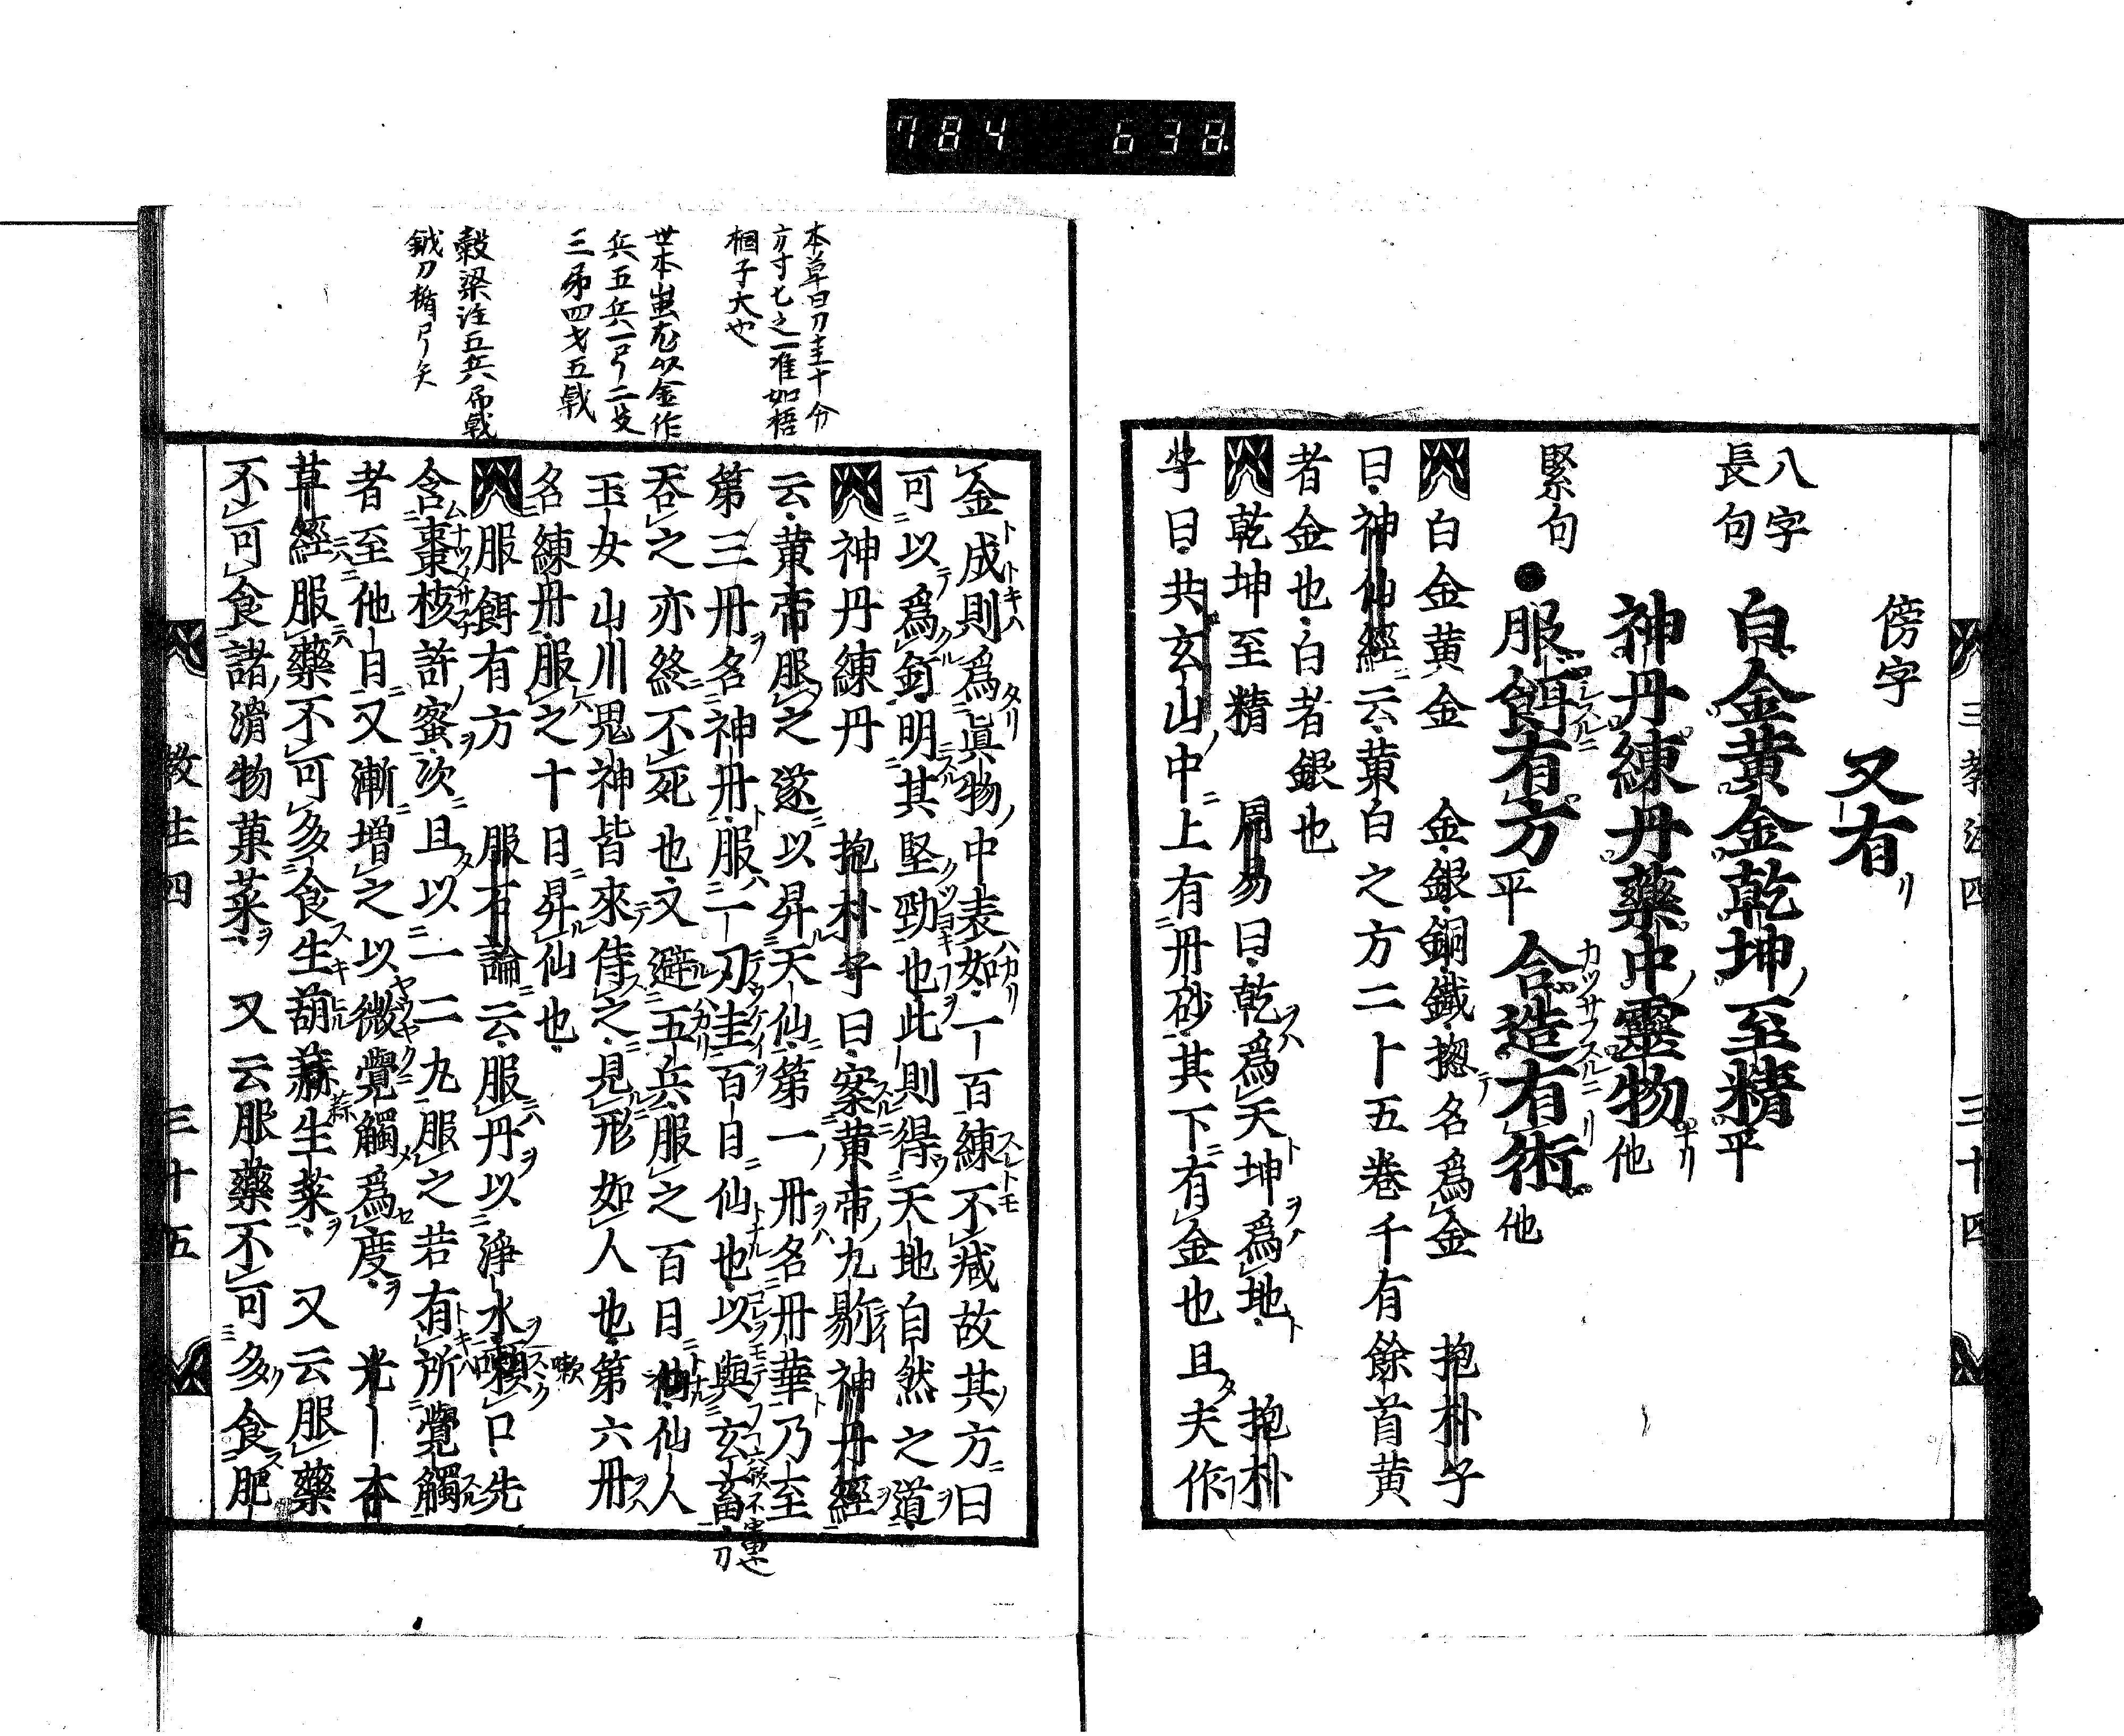 784 638
三教注四 三十四
傍字 又有リ
八字
長句
白金黄金乾坤ノ至精平
神丹練丹藥中ノ靈物ナリ他
緊句
●服餌有方平 合造有術他
白金黄金 金銀銅鐵揔名爲金 抱朴子
曰神仙經云黄白之方二十五巻千有餘首黄
者金也白者銀也
乾坤至精 周易曰乾爲天坤爲地 抱朴
子曰共玄山中上有丹砂其下有金也且夫作
金成則爲眞物中表如一百練不減故其方曰
可以爲釘明其堅勁也此則得天地自然之道
神丹練丹 抱朴子曰案黄帝九鼎神丹經
云黄帝服之遂以昇天仙第一丹名丹華乃至
第三丹名神丹服一刀圭百日仙也以與六畜
吞之亦終不死也又避五兵服之百日仙人
玉女山川鬼神皆來侍之見形如人也第六丹
名練丹服之十日昇仙也
服餌有方 服石論云服丹以淨水嗽口先
含棗核許蜜次且以一二丸服之若有所覺觸
者至他日又漸増之以微覺觸爲度 光ー本
草經服藥不可多食生葫蒜生菜 又云服藥
不可食諸滑物菓菜 又云服藥不可多食肥
教注四 三十五
本草曰刀圭十分
方寸匕之一准如梧
桐子大也
世本蚩尤以金作
兵五兵一弓二殳
三矛四戈五戟
穀梁注五兵矛戟
鉞刀楯弓矢